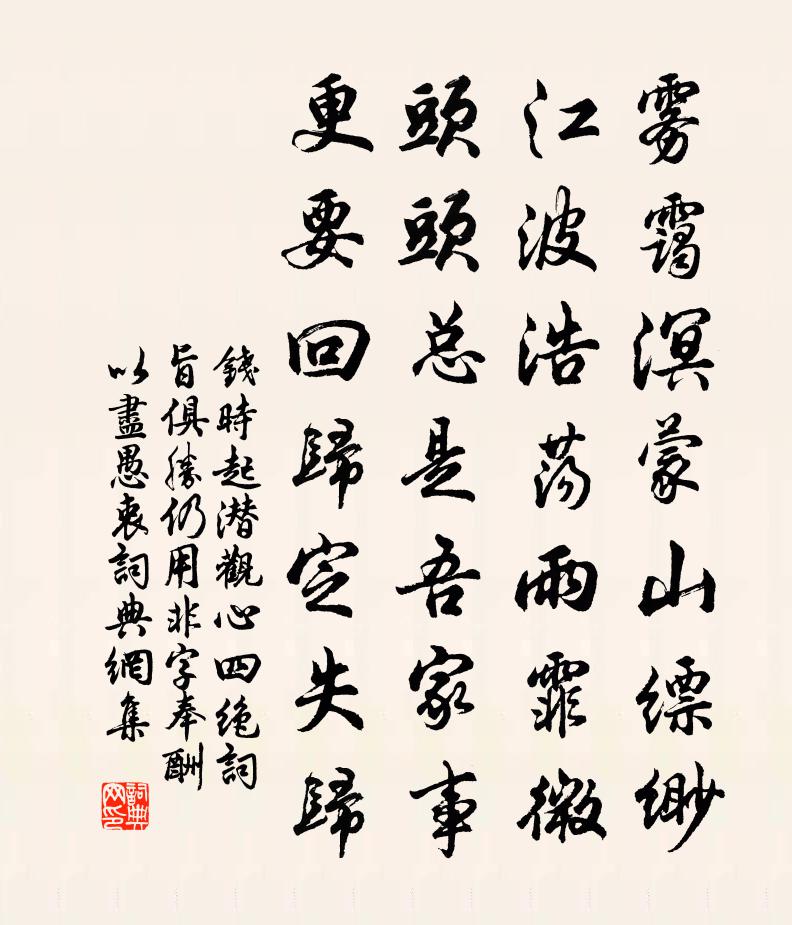 雾靄溟蒙山縹緲
江波浩荡雨霏微
頭頭总是吾家事
更要回歸定失歸
錢時起潜觀心四絶詞
旨俱勝仍用非字奉酬
以盡愚衷詞典網集
詞典网印